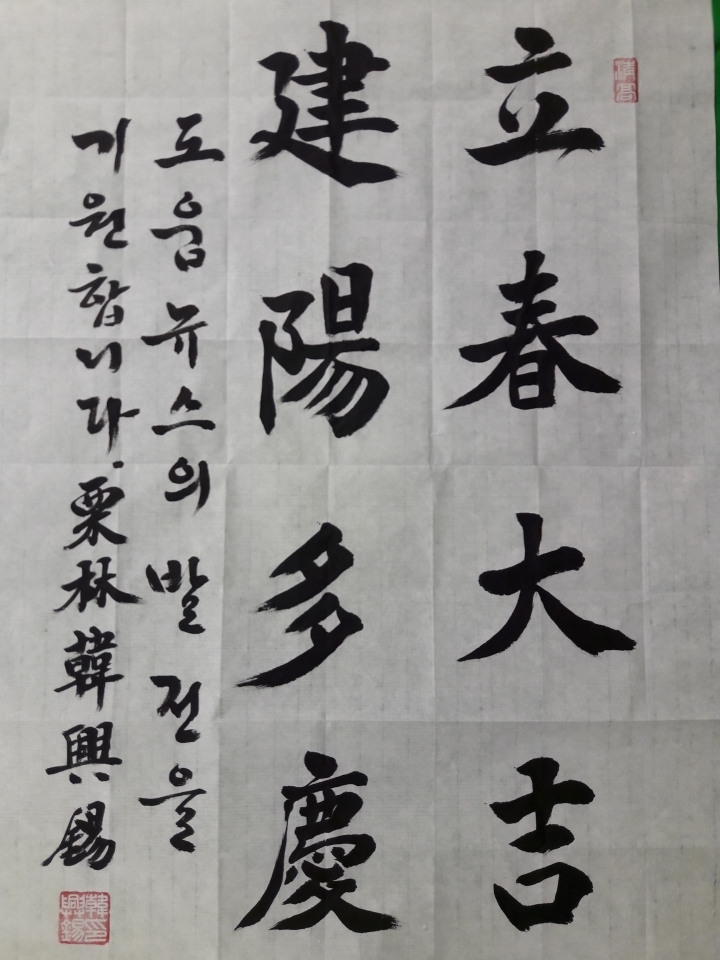 立春大吉
建陽多慶
도움뉴스의 발전을
기원합니다. 栗林 韓興錫
韓興錫印